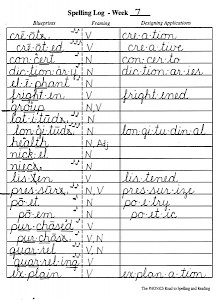 Spelling Log - Week 7
Blueprints Framing Designing Applications
cre āte V cre a tion
cre āt ed V cre a tive
con cert N con cer to
dic tion ar y N dic tion ar ies
el e phant N
fright en V fright ened
group N, V
lat i tude N
lon gi tude N lon gi tu din al
health N, Adj
nick el N
niece N
lis ten V lis tened
pres sure N, V pres sur ize
po et N po e try
po em N po et ic
pur chased V
pur chase V, N
quar rel V, N
quar rel ing V
ex plain V ex plan a tion
The PHONICS Road to Spelling and Reading